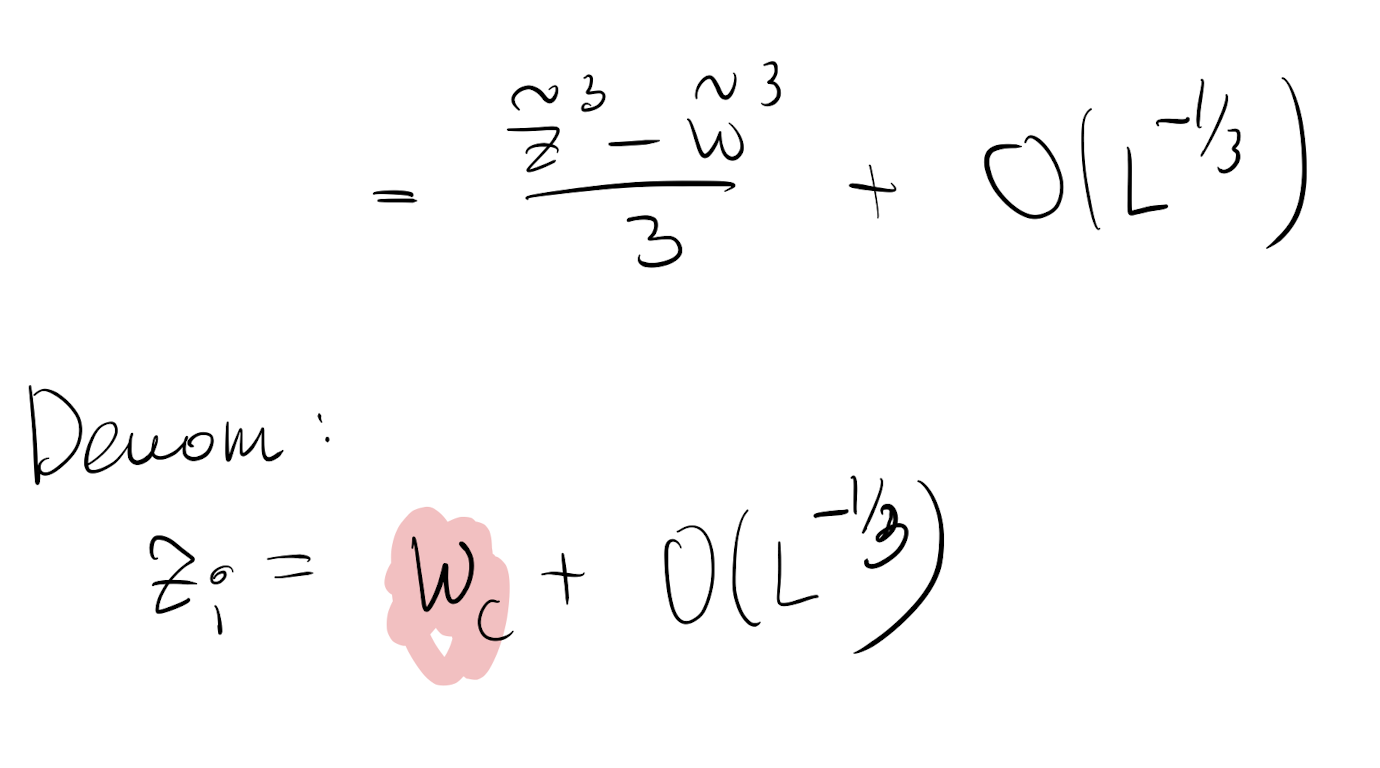 = (z̃³ − w̃³)/3 + O(L^{-1/3})
Denom:
z_i = w_c + O(L^{-1/3})